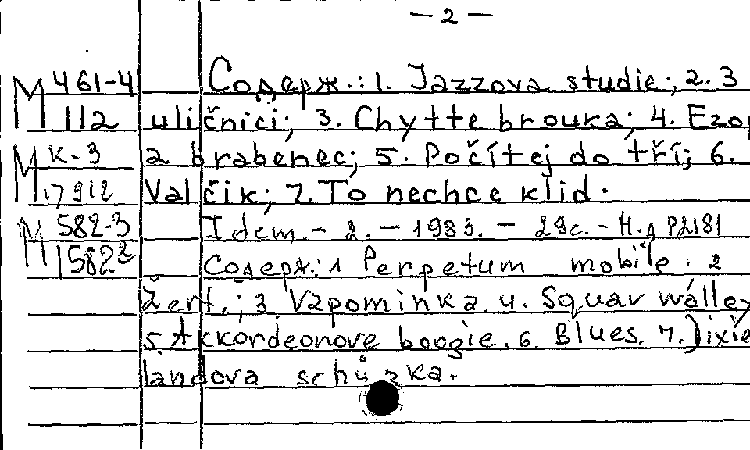 — 2 —
М 461-4 Содерж.: 1. Jazzova studie; 2. 3
112 uličnici; 3. Chytte brouka; 4. Ezop
М К-3 a brabenec; 5. Počítej do tří; 6.
17912 Valčik; 7. To nechce klid.
М 582-3 Idem. - 2. - 1983. - 29с. - Н.д P2181
1582 Содерж.: 1 Perpetum mobile. 2
Žert.; 3. Vzpominka. 4. Squar walley
5. Akkordeonove boogie. 6. Blues. 7. Dixie
landova schůzka.